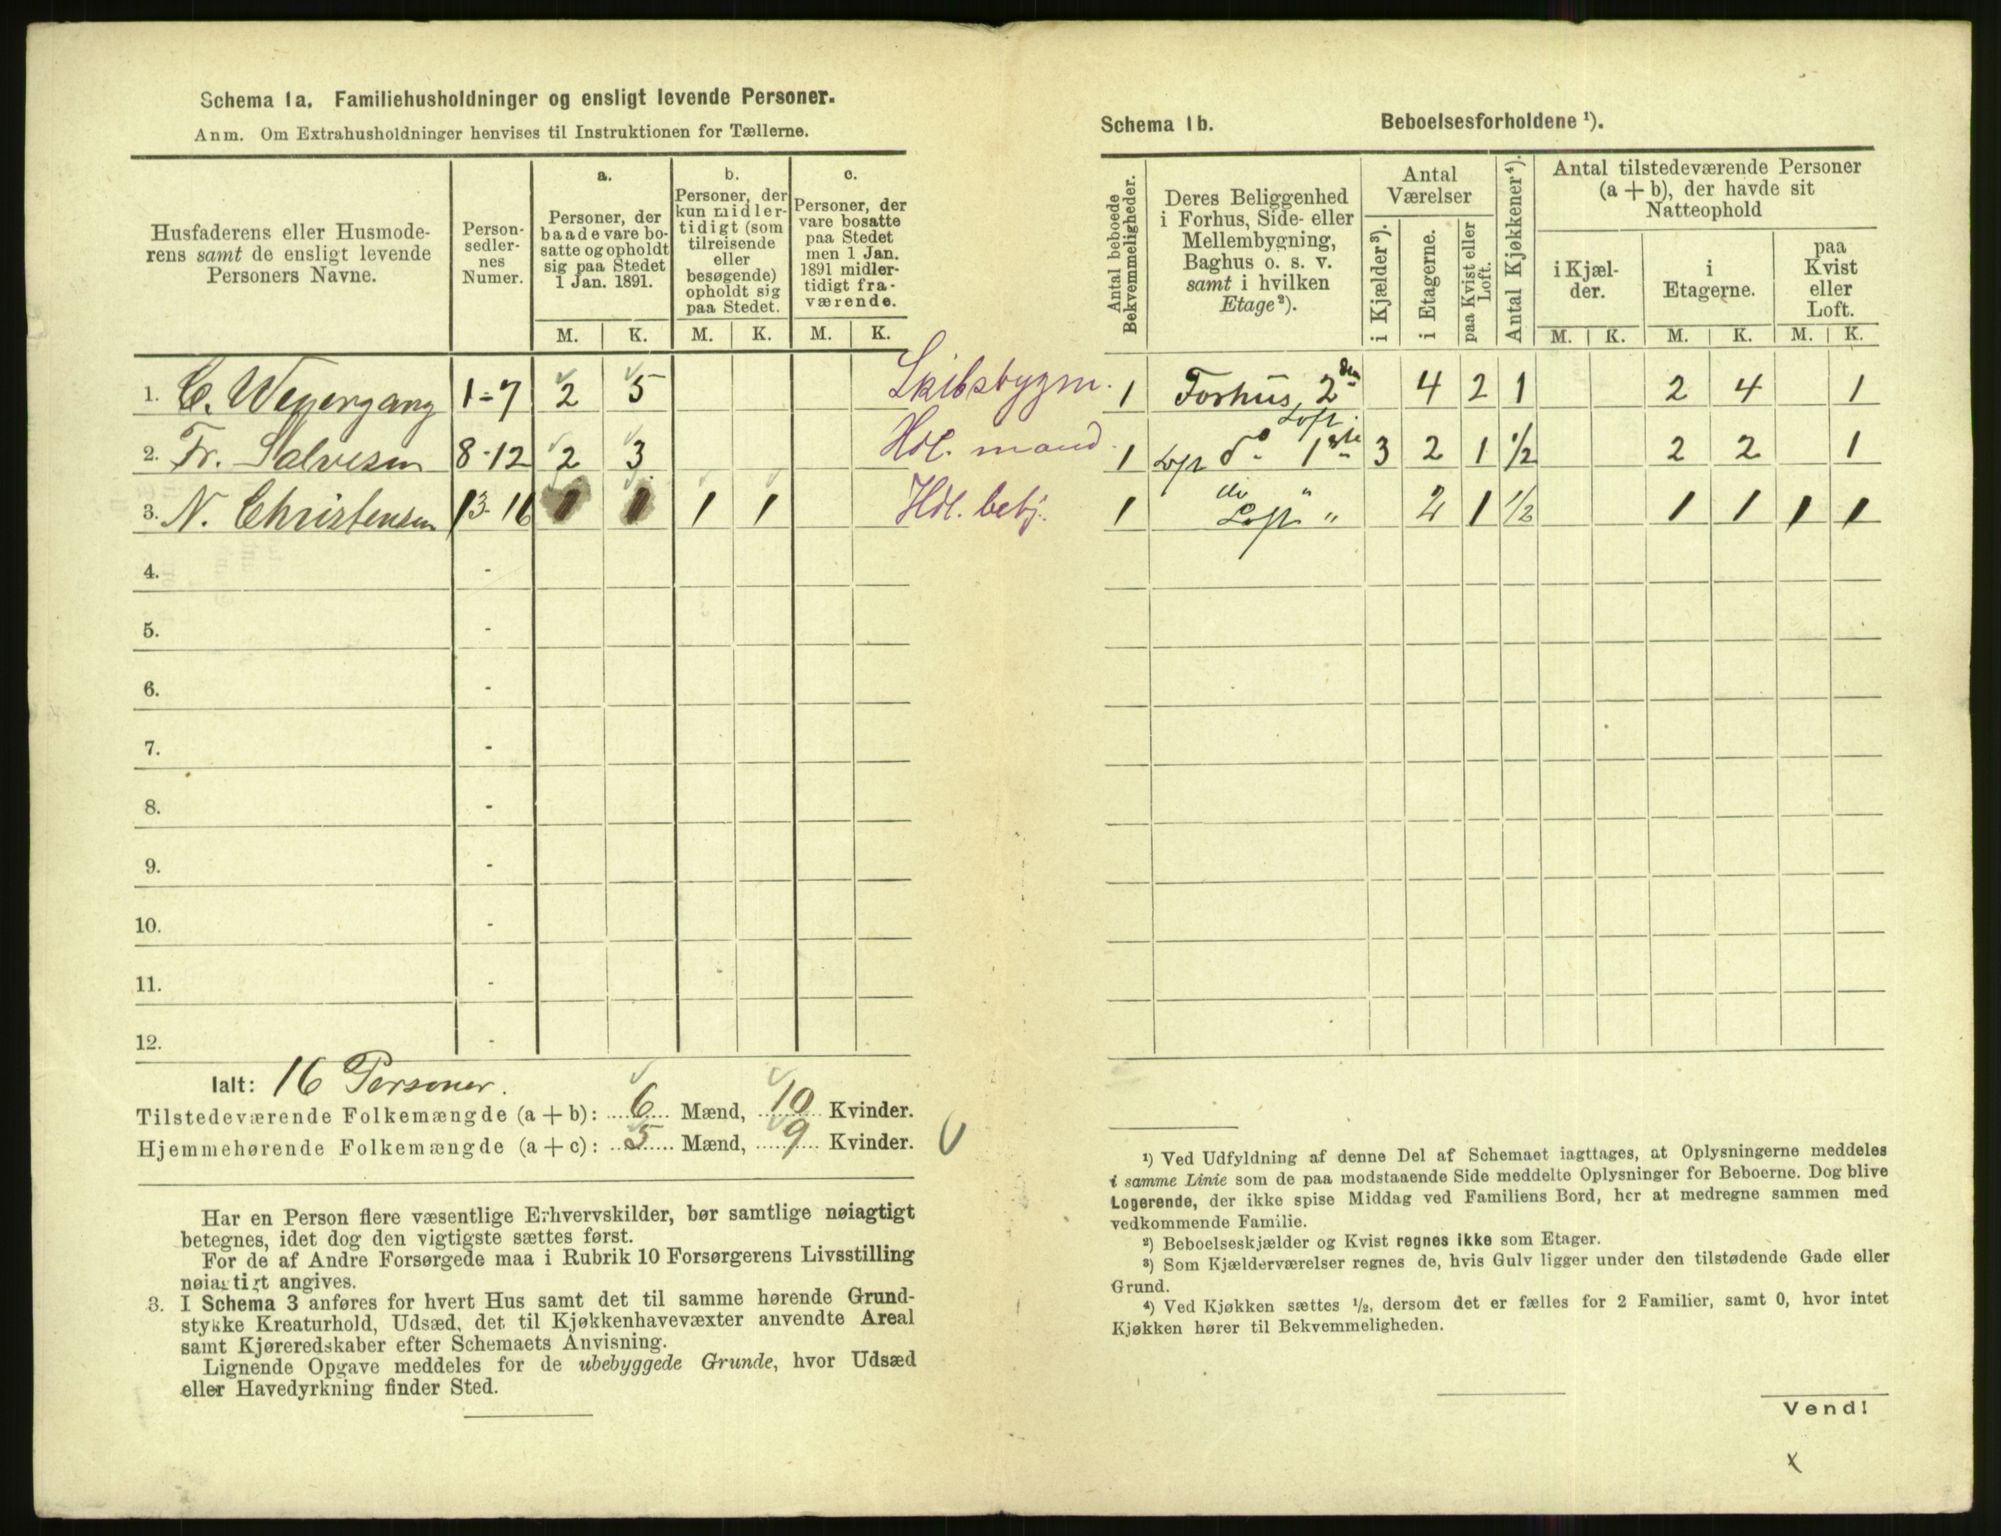 Schema 1a. Familiehusholdninger og ensligt levende Personer.
Anm. Om Extrahusholdninger henvises til Instruktionen for Tællerne.
Husfaderens eller Husmode-
rens samt de ensligt levende
Personers Navne.
Person-
sedler-
nes
Numer.
a.
Personer, der
baade vare bo-
satte og opholdt
sig paa Stedet
1 Jan. 1891.
b.
Personer, der
kun midler-
tidigt (som
tilreisende
eller
besøgende)
opholdt sig
paa Stedet.
c.
Personer, der
vare bosatte
paa Stedet
men 1 Jan.
1891 midler-
tidigt fra-
værende.
M. K. M. K. M. K.
1. C. Wegergang 1-7 2 5 Skibsbygm.
2. Fr. Salvesen 8-12 2 3 Hdl. mand.
3. N. Christensen 13-16 1 1 1 1 Hdl. betj.
4. -
5. -
6. -
7. -
8. -
9. -
10. -
11. -
12. -
Ialt: 16 Personer.
Tilstedeværende Folkemængde (a + b): 6 Mænd, 10 Kvinder.
Hjemmehørende Folkemængde (a + c): 5 Mænd, 9 Kvinder.
Har en Person flere væsentlige Erhvervskilder, bør samtlige nøiagtigt
betegnes, idet dog den vigtigste sættes først.
For de af Andre Forsørgede maa i Rubrik 10 Forsørgerens Livsstilling
nøiagtigt angives.
3. I Schema 3 anføres for hvert Hus samt det til samme hørende Grund-
stykke Kreaturhold, Udsæd, det til Kjøkkenhavevæxter anvendte Areal
samt Kjøreredskaber efter Schemaets Anvisning.
Lignende Opgave meddeles for de ubebyggede Grunde, hvor Udsæd
eller Havedyrkning finder Sted.
Schema 1b. Beboelsesforholdene ¹).
Antal beboede
Bekvemmeligheder.
Deres Beliggenhed
i Forhus, Side- eller
Mellembygning,
Baghus o. s. v.
samt i hvilken
Etage²).
Antal
Værelser
i Kjælder³).
i Etagerne.
paa Kvist eller
Loft.
Antal Kjøkkener⁴).
Antal tilstedeværende Personer
(a + b), der havde sit
Natteophold
i Kjæl-
der.
i
Etagerne.
paa
Kvist
eller
Loft.
M. K. M. K. M. K.
1 Forhus 2den 4 2 1 2 4 1
Loft
1 Loft do 1ste 3 2 1 1/2 2 2 1
do "
1 Loft " 2 1 1/2 1 1 1 1
¹) Ved Udfyldning af denne Del af Schemaet iagttages, at Oplysningerne meddeles
i samme Linie som de paa modstaaende Side meddelte Oplysninger for Beboerne. Dog blive
Logerende, der ikke spise Middag ved Familiens Bord, her at medregne sammen med
vedkommende Familie.
²) Beboelseskjælder og Kvist regnes ikke som Etager.
³) Som Kjælderværelser regnes de, hvis Gulv ligger under den tilstødende Gade eller
Grund.
⁴) Ved Kjøkken sættes ½, dersom det er fælles for 2 Familier, samt 0, hvor intet
Kjøkken hører til Bekvemmeligheden.
Vend!
x